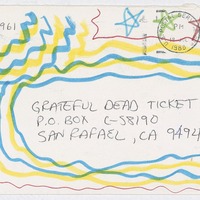 961
GRATEFUL DEAD TICKET
P.O. BOX C-S8190
SAN RAFAEL, CA 9494
PM
1988